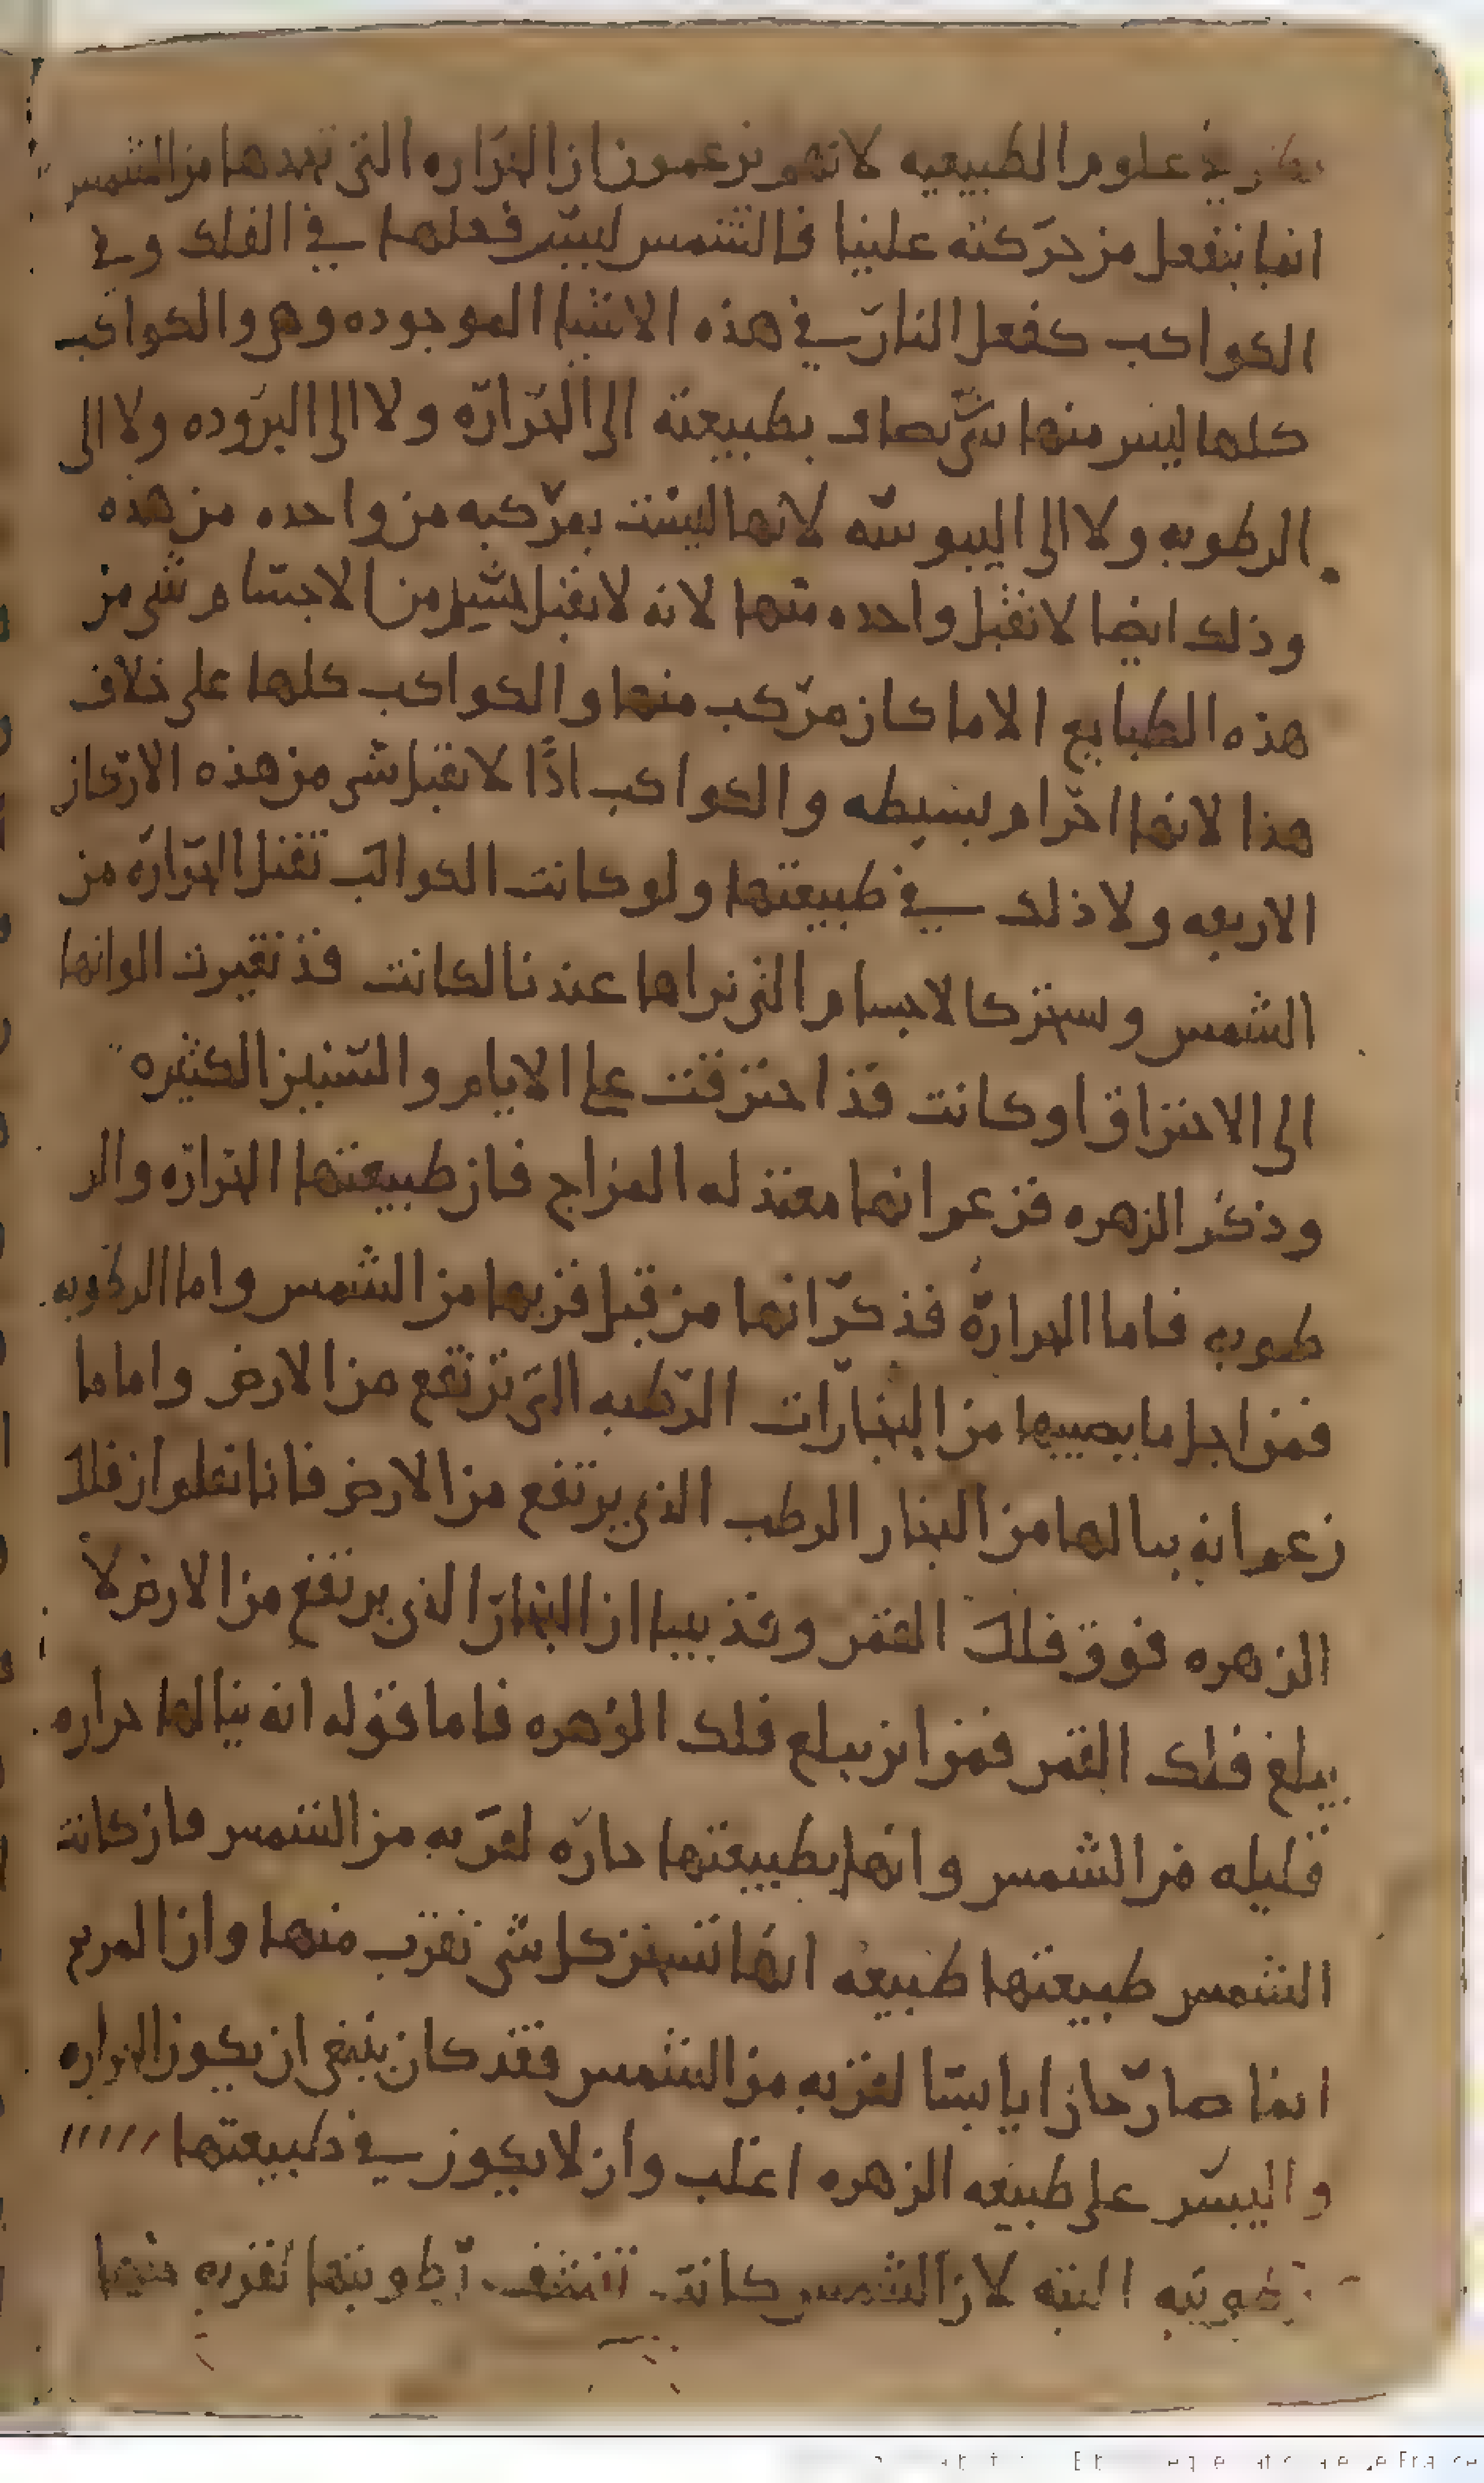 في علوم الطبيعيه لانهم يزعمون ان الحراره التي نجدها من الشمس
انما ينفعل من حركته علينا فالشمس ليس فعلها في الفلك وفي
الكواكب كفعل النار في هذه الاشيا الموجوده وهو والكواكب
كلها ليس منها شي بطبيعته الى الحراره ولا الى البروده ولا الى
الرطوبه ولا الى اليبوسه لانها ليست بمركبه من واحده من هذه
وذلك ايضا لا تقبل واحده منها لانه لا يقبل من الاجسام شي من
هذه الطبايع الا ما كان مركب منها والكواكب كلها على خلاف
هذا لانها اجرام بسيطه والكواكب اذا لا تقبل شي من هذه الاركان
الاربعه ولا ذلك في طبيعتها ولو كانت الكواكب تقبل الحراره من
الشمس وسخن كالاجسام التي نراها عندنا لكانت قد تغيرت الوانها
الى الاحتراق او كانت قد احترقت على الايام والسنين الكثيره
وذكر الزهره فزعم انها معتدله المزاج فان طبيعتها الحراره والر
طوبه فاما الحرارة فذكر انها من قبل قربها من الشمس واما الرطوبه
فمن اجل ما يصيبها من البخارات الرطبه التي ترتفع من الارض واما ما
زعم انه ينالها من البخار الرطب الذي يرتفع من الارض فانا نعلم ان فلك
الزهره فوق فلك القمر وقد بينا ان البخار الذي يرتفع من الارض لا
يبلغ فلك القمر فمن اين يبلغ فلك الزهره فاما قوله انه ينالها حراره
قليله من الشمس وانها بطبيعتها حاره لقربه من الشمس فان كانت
الشمس طبيعتها طبيعه انها تسخن كل شي تقرب منها وان المريخ
انما صار حارا يابسا لقربه من الشمس فقد كان ينبغي ان يكون الحراره
واليبس على طبيعه الزهره اغلب وان لا يكون في طبيعتها
البته لان الشمس كانت تنشف رطوبتها لقربه منها